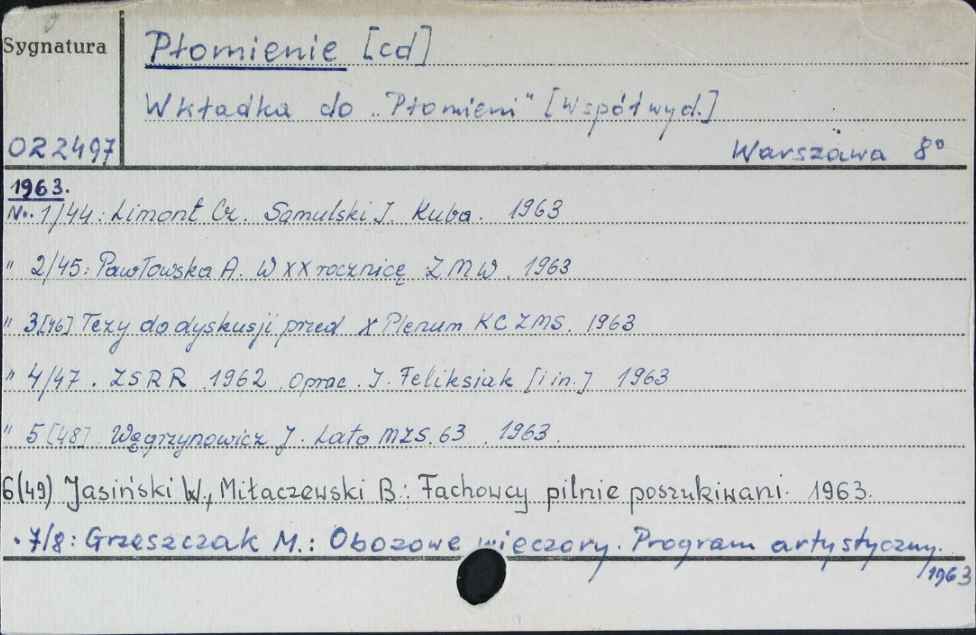 Sygnatura
Płomienie [cd]
Wkładka do „Płomieni" [Współwyd.]
022497
Warszawa 8°
1963.
Nr. 1/44: Limont Cz. Samulski J. Kuba. 1963
" 2/45: Pawłowska A. W XX rocznicę ZMW. 1963
" 3[46] Tezy do dyskusji przed X Plenum KC ZMS. 1963
" 4/47. ZSRR 1962. Oprac. J. Feliksiak [i in.] 1963
" 5[48] Węgrzynowicz J. Lato MZS. 63. 1963.
6(49) Jasiński W., Miłaczewski B.: Fachowcy pilnie poszukiwani. 1963.
" 7/8: Grzeszczak M.: Obozowe wieczory. Program artystyczny.
1963